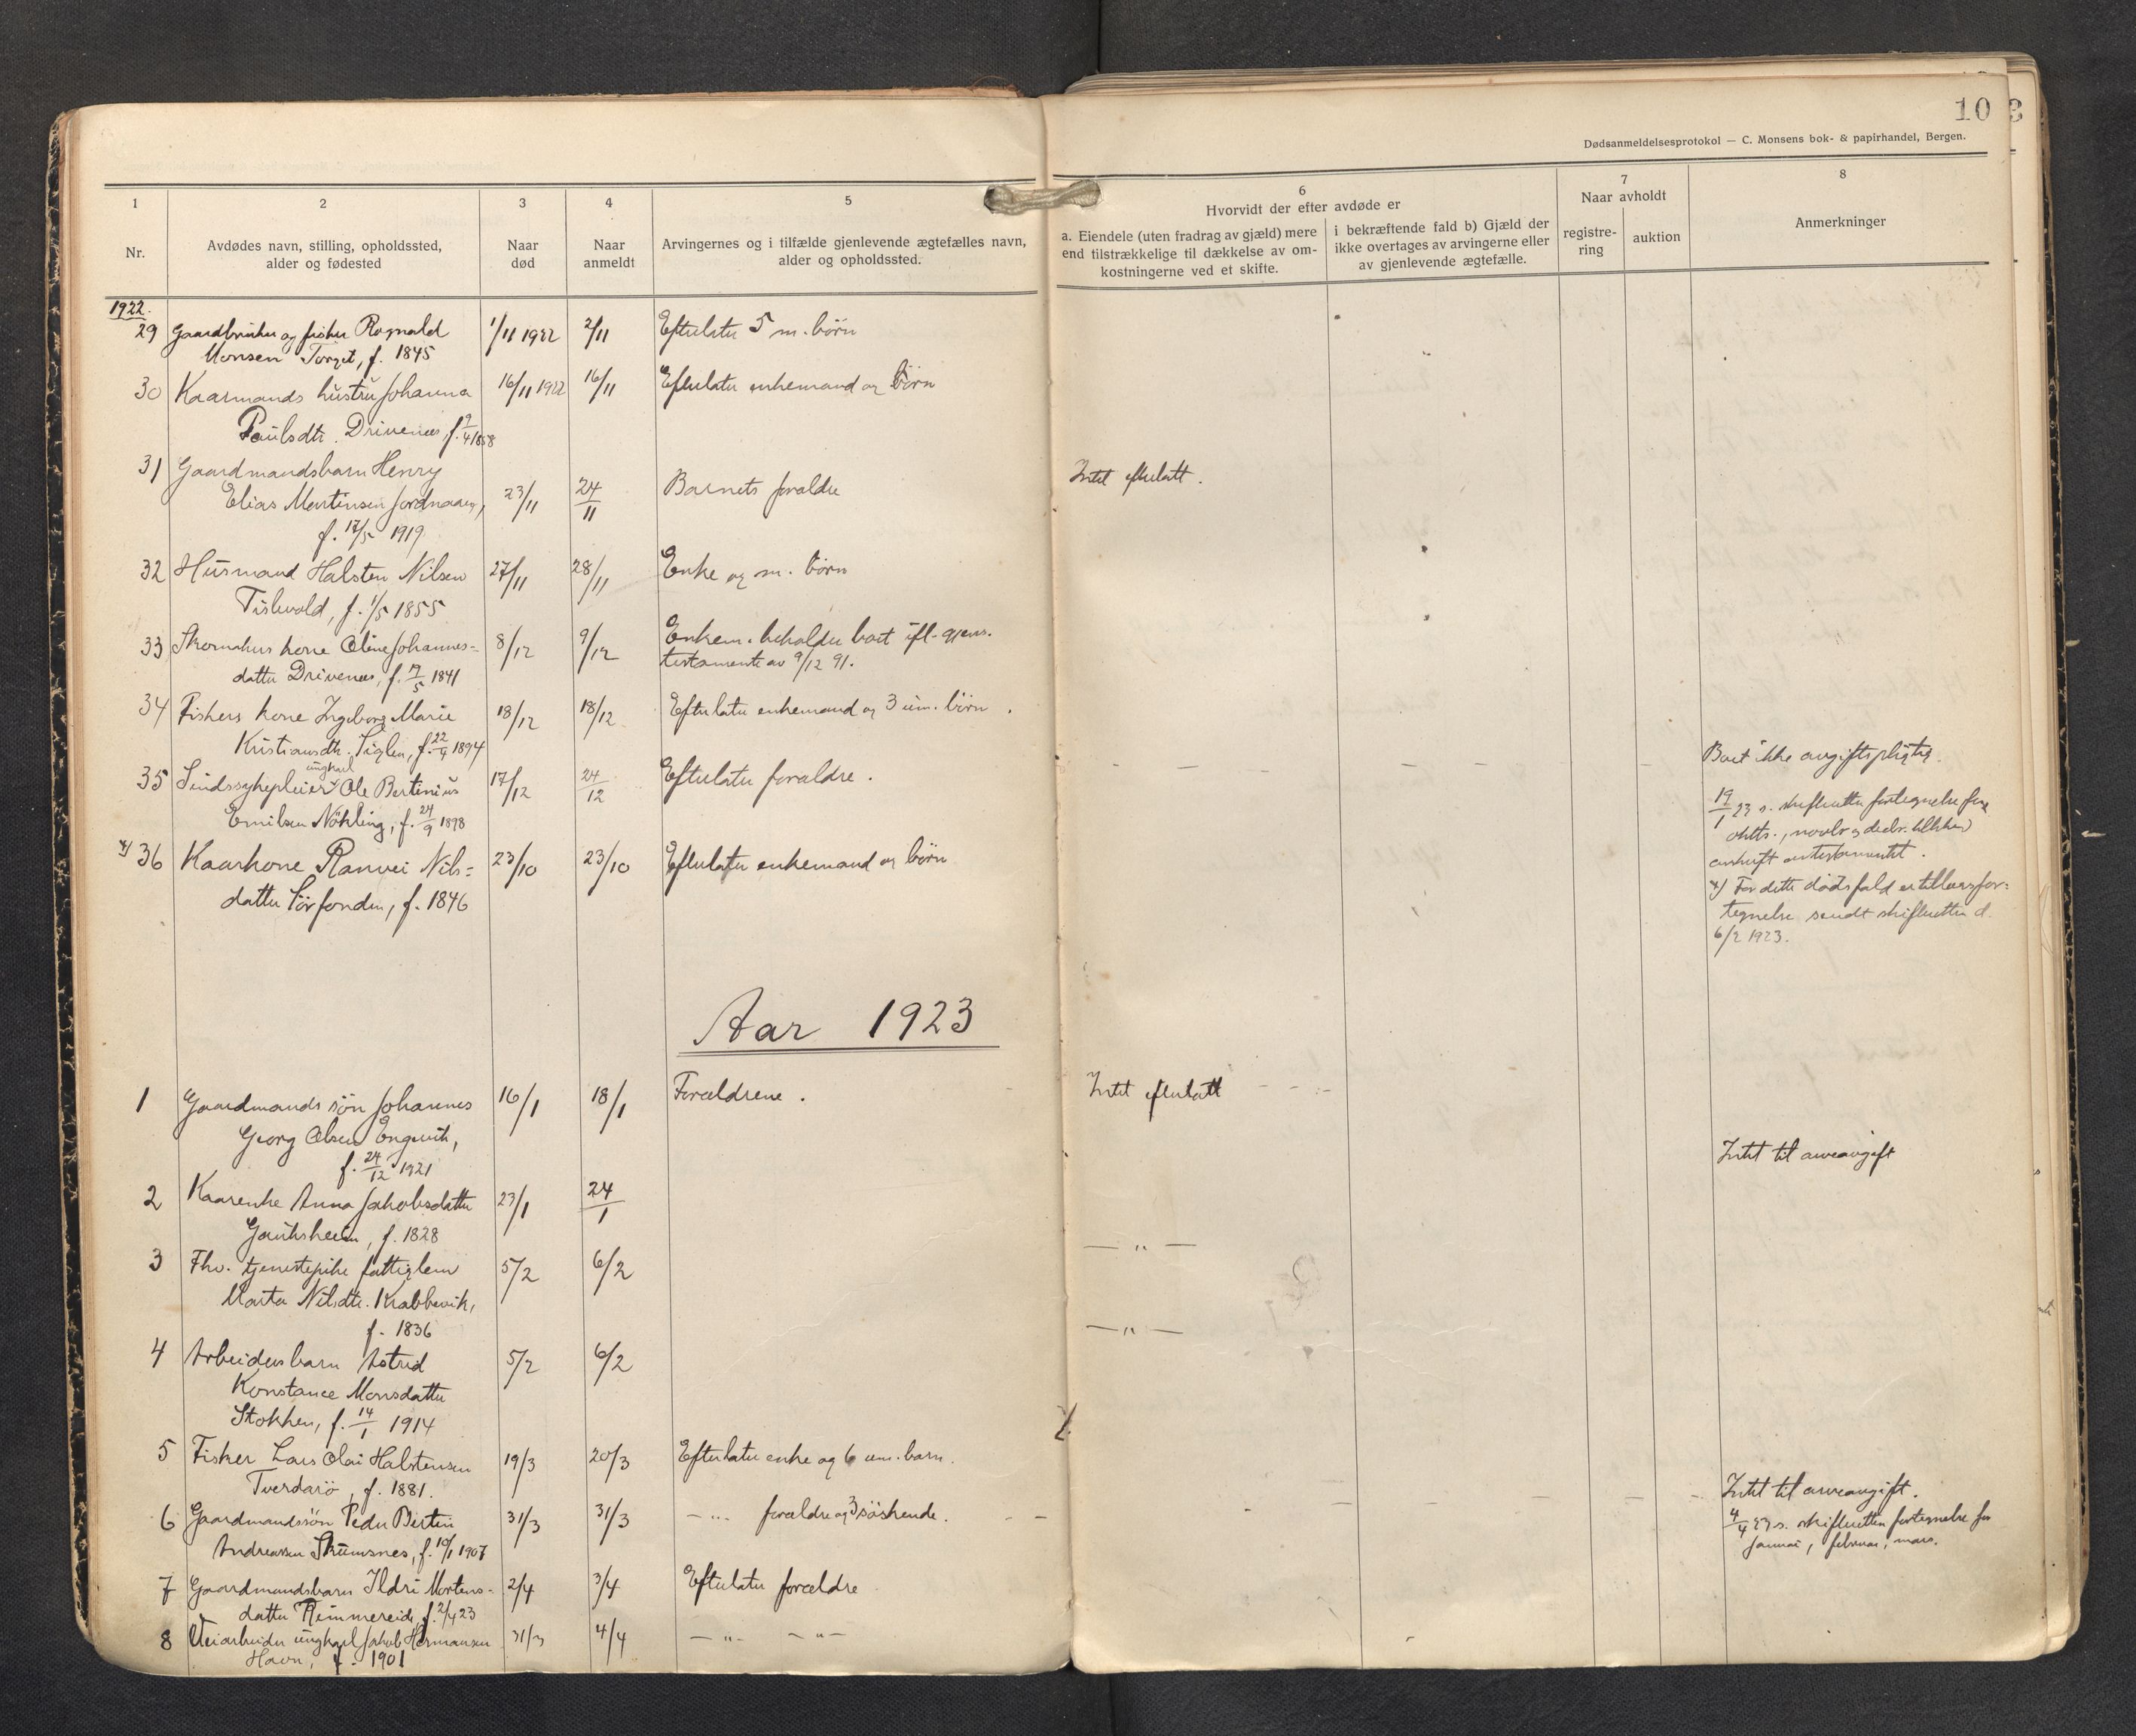 10
Dødsanmeldelsesprotokol — C. Monsens bok- & papirhandel, Bergen.
1
Nr.
2
Avdødes navn, stilling, opholdssted,
alder og fødested
3
Naar
død
4
Naar
anmeldt
5
Arvingernes og i tilfælde gjenlevende ægtefælles navn,
alder og opholdssted.
6
Hvorvidt der efter avdøde er
a. Eiendele (uten fradrag av gjæld) mere
end tilstrækkelige til dækkelse av om-
kostningerne ved et skifte.
i bekræftende fald b) Gjæld der
ikke overtages av arvingerne eller
av gjenlevende ægtefælle.
7
Naar avholdt
registre-
ring
auktion
8
Anmerkninger
1922.
29 Gaardbruker og fisker Rognald 1/11 1922 2/11 Efterlater 5 m. børn
Monsen Torget, f. 1845
30 Kaarmands hustru Johanna 16/11 1922 16/11 Efterlater enkemand og børn
Paulsdtr. Drivenes, f. 9/4 1858
31 Gaardmandsbarn Henry
Elias Martinsen 23/11 24/11 Barnets forældre Intet efterlatt.
f. 17/5 1919
32 Husmand Halsten Nilsen 27/11 28/11 Enke og m. børn
f. 1/5 1855
33 Skomakers kone Oline Johannes- 8/12 9/12 Enkem. beholder boet ifl. gjens.
datter Drivenes, f. 19/5 1841 testamente av 9/12 91.
34 Fiskers kone Ingeborg Marie 18/12 18/12 Efterlater enkemand og 3 um. børn.
Kristiansdtr. f. 22/4 1894 Boet ikke avgiftspligtig.
ungkarl
35 Sindssykepleier Ole Bertinius 17/12 24/12 Efterlater forældre.
Emilsen Nøkling, f. 24/9 1898
19/1 23 s. skifteretten fortegnelse for
oktbr., novbr. og decbr.
avskrift av testamentet.
x) 36 Kaarkone Ranvei Nils- 23/10 23/10 Efterlater enkemand og børn
datter Sørfonden, f. 1846
x) For dette dødsfald er tillægsfor-
tegnelse sendt skifteretten d.
6/2 1923.
Aar 1923
1 Gaardmands søn Johannes 16/1 18/1 Forældrene. Intet efterlatt
Georg Olsen Engevik,
f. 24/12 1921
Intet til arveavgift
2 Kaarenke Anna Jakobsdatter 23/1 24/1
Gauksheim, f. 1828 — " —
3 Fhv. tjenestepike fattiglem 5/2 6/2
Marta Nilsdtr. Krabbevik,
f. 1836 — " —
4 Arbeidersbarn Astrid 5/2 6/2
Konstance Monsdatter
Stokken, f. 14/1 1914
5 Fisker Lars Olai Halstensen 19/3 20/3 Efterlater enke og 6 um. barn.
Tverdarø, f. 1881. Intet til arveavgift.
6 Gaardmandssøn Peder Bertin 31/3 31/3 — " — forældre og 3 søskende.
Andreassen Skumsnes, f. 10/1 1907
4/4 23 s. skifteretten fortegnelse for
januar, februar, mars.
7 Gaardmandsbarn Ildri Mortens- 2/4 3/4 Efterlater forældre
datter Rimmereide, f. 2/4 23
8 Veiarbeider ungkarl Jakob Hermansen 31/3 4/4 — " — — " —
Havn, f. 1901